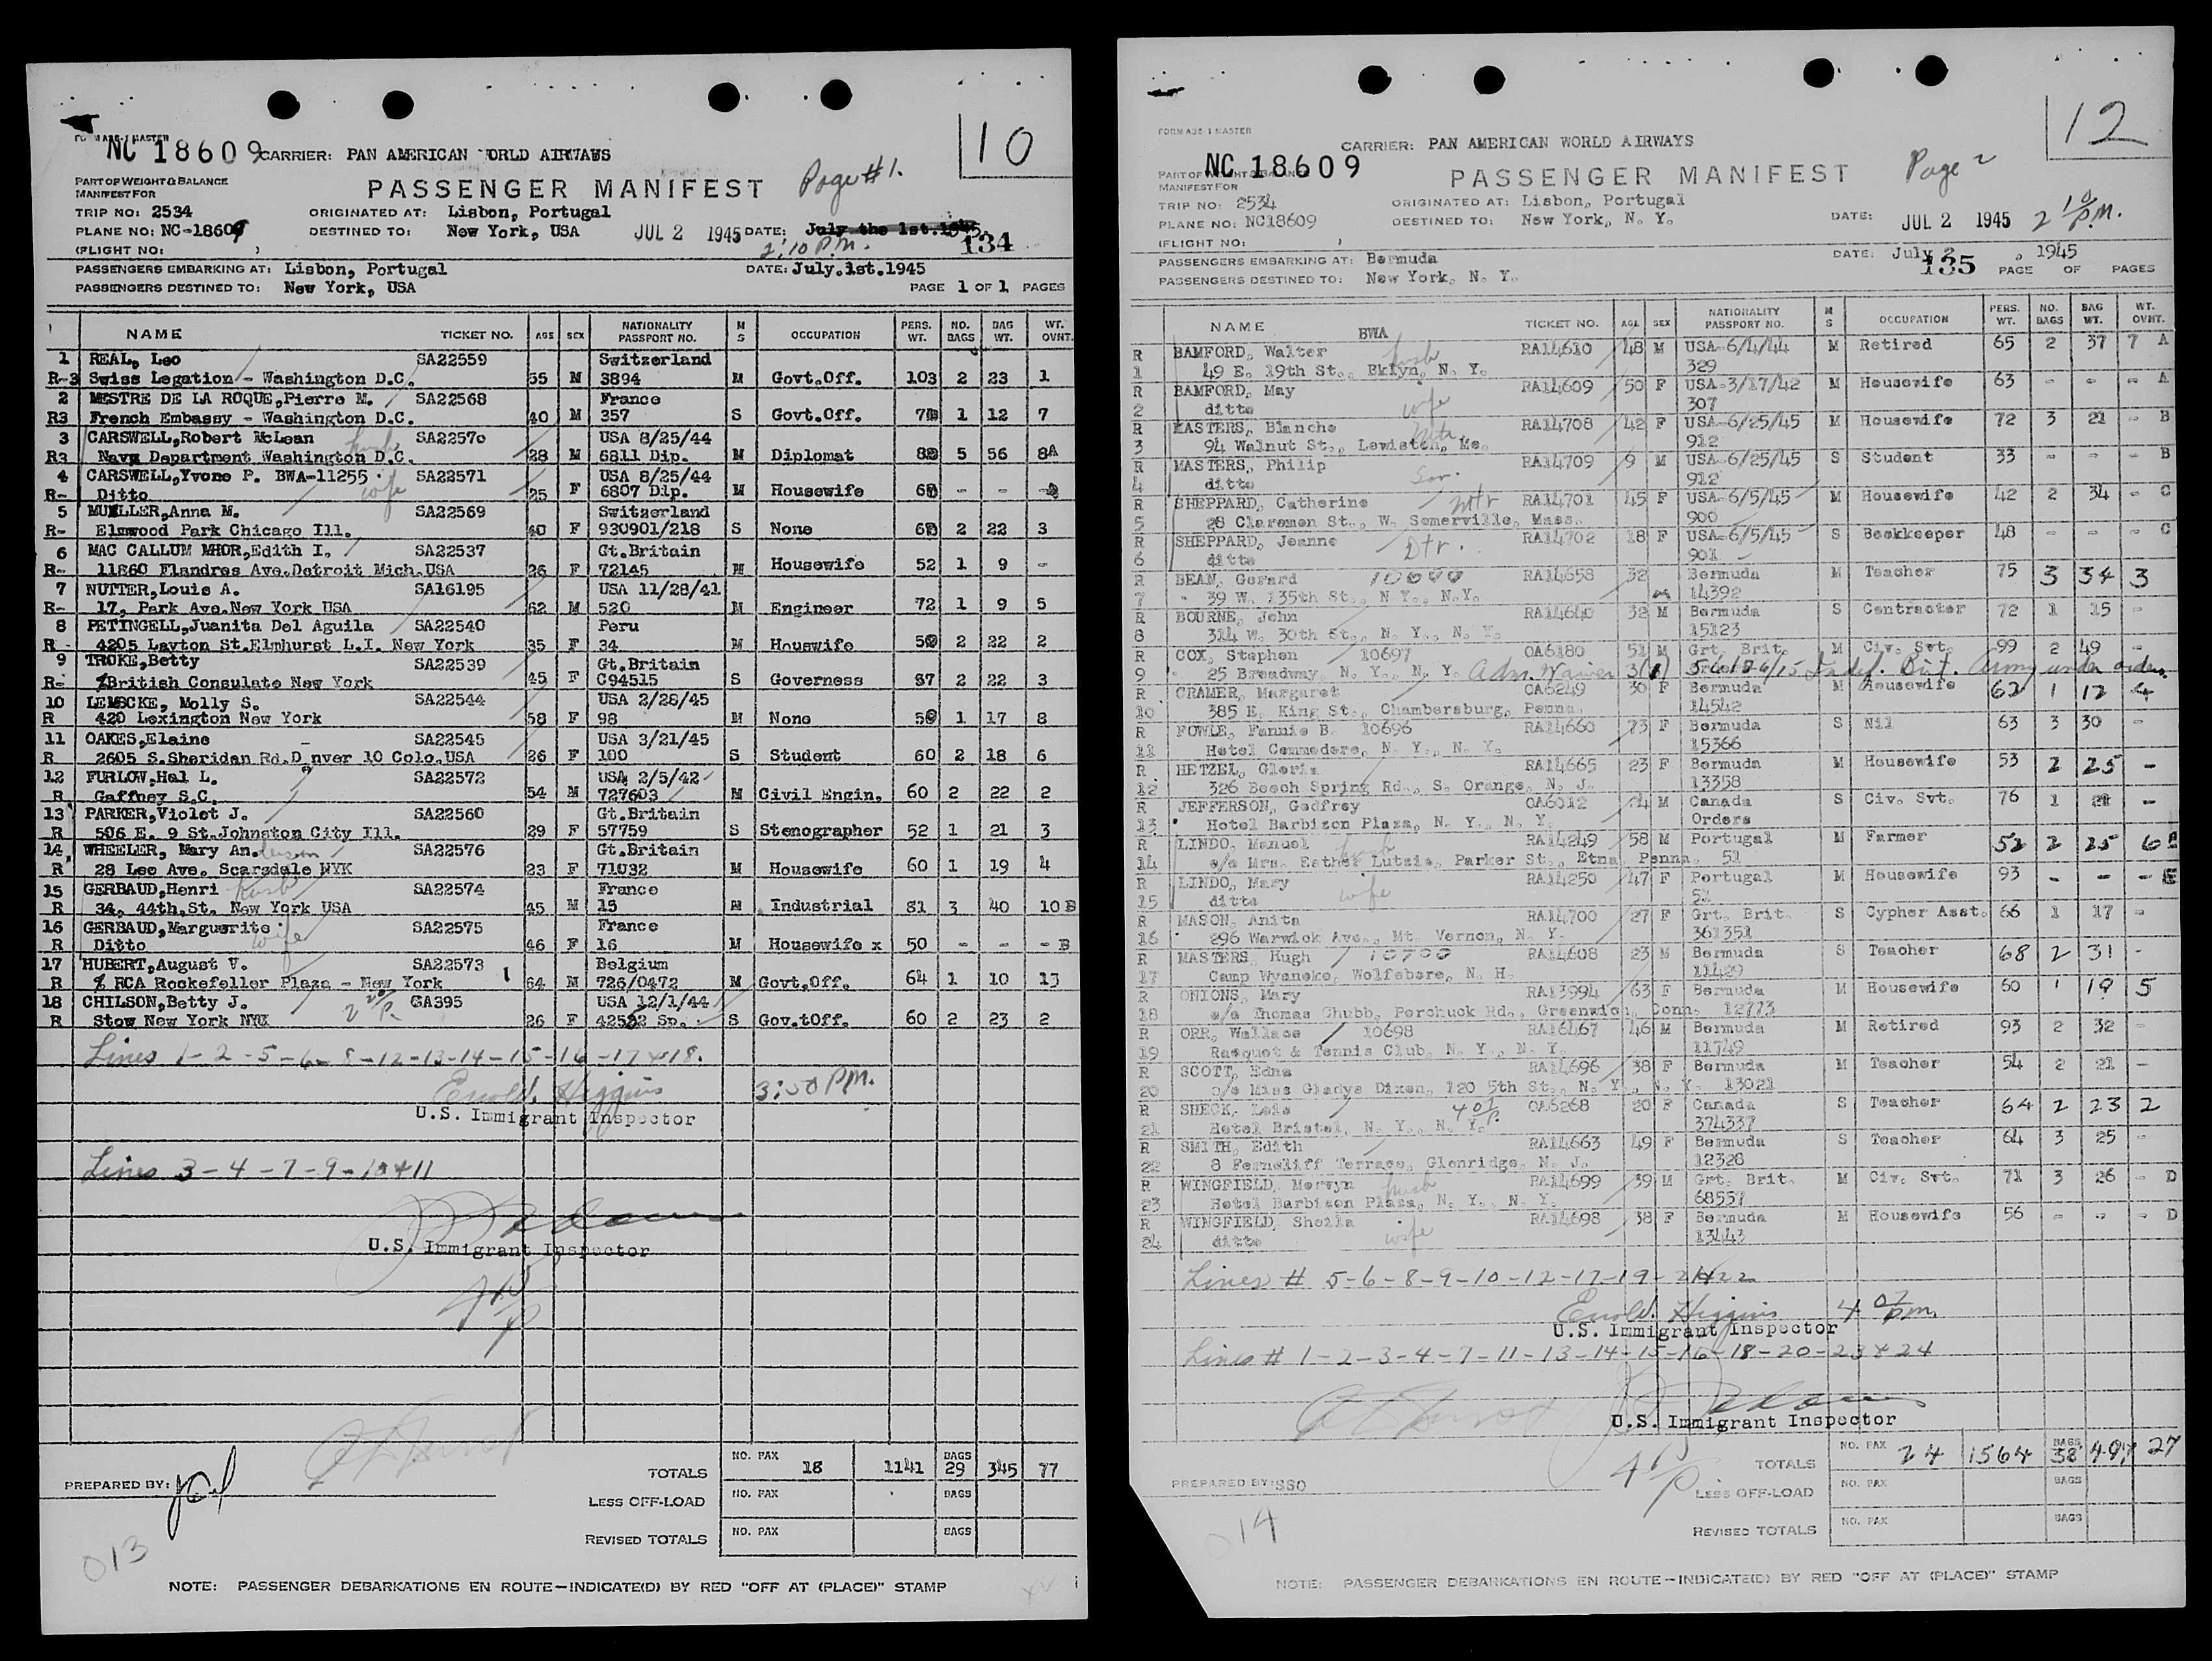 10
FORM A38-1 MASTER
NC 18609 CARRIER: PAN AMERICAN WORLD AIRWAYS
Page #1.
PART OF WEIGHT & BALANCE
MANIFEST FOR
PASSENGER MANIFEST
TRIP NO: 2534 ORIGINATED AT: Lisbon, Portugal
PLANE NO: NC-18609 DESTINED TO: New York, USA JUL 2 1945 DATE: July the 1st.1945.
(FLIGHT NO: ) 2:10 P.M. 134
PASSENGERS EMBARKING AT: Lisbon, Portugal DATE: July.1st.1945
PASSENGERS DESTINED TO: New York, USA PAGE 1 OF 1 PAGES
NAME TICKET NO. AGE SEX NATIONALITY PASSPORT NO. M S OCCUPATION PERS. WT. NO. BAGS BAG WT. WT. OVHT.
1 REAL, Leo SA22559 Switzerland
R-3 Swiss Legation - Washington D.C. 55 M 3894 M Govt.Off. 103 2 23 1
2 MESTRE DE LA ROQUE,Pierre M. SA22568 France
R3 French Embassy - Washington D.C. 40 M 357 S Govt.Off. 1 12 7
3 CARSWELL,Robert McLean husb SA22570 USA 8/25/44
R3 Navy Department Washington D.C. 28 M 6811 Dip. M Diplomat 5 56 8A
4 CARSWELL,Yvone P. BWA-11255 wife SA22571 USA 8/25/44
R- Ditto 25 F 6807 Dip. M Housewife - -
5 MUELLER,Anna M. SA22569 Switzerland
R- Elmwood Park Chicago Ill. 40 F 930901/218 S None 2 22 3
6 MAC CALLUM MHOR,Edith I. SA22537 Gt.Britain
R- 11860 Flandres Ave.Detroit Mich.USA 26 F 72145 M Housewife 52 1 9 -
7 NUTTER,Louis A. SA16195 USA 11/28/41
R- 17, Park Ave.New York USA 62 M 520 M Engineer 72 1 9 5
8 PETINGELL,Juanita Del Aguila SA22540 Peru
R - 4205 Layton St.Elmhurst L.I. New York 35 F 34 M Houswife 2 22 2
9 TROKE,Betty SA22539 Gt.Britain
R- %British Consulate New York 45 F C94515 S Governess 87 2 22 3
10 LEMBCKE, Molly S. SA22544 USA 2/26/45
R 420 Lexington New York 58 F 98 M None 1 17 8
11 OAKES,Elaine SA22545 USA 3/21/45
R 2605 S.Sheridan Rd.Denver 10 Colo.USA 26 F 100 S Student 60 2 18 6
12 FURLOW,Hal L. SA22572 USA 2/5/42
R Gaffney S.C. 54 M 727603 M Civil Engin. 60 2 22 2
13 PARKER,Violet J. SA22560 Gt.Britain
R 506 E. 9 St.Johnston City Ill. 29 F 57759 S Stenographer 52 1 21 3
14 WHEELER, Mary Anderson SA22576 Gt.Britain
R 28 Lee Ave. Scarsdale NYK 23 F 71032 M Housewife 60 1 19 4
15 GERBAUD,Henri husb SA22574 France
R 34, 44th.St. New York USA 45 M 15 M Industrial 81 3 40 10 B
16 GERBAUD,Marguerite wife SA22575 France
R Ditto 46 F 16 M Housewife x 50 - - - B
17 HUBERT,August V. SA22573 Belgium
R % RCA Rockefeller Plaza - New York 64 M 726/0472 M Govt.Off. 64 1 10 13
18 CHILSON,Betty J. GA395 USA 12/1/44
R Stow New York NYK 26 F Sp. S Gov.tOff. 60 2 23 2
Lines 1-2-5-6-8-12-13-14-15-16-17&18.
Enold. Higgins 3:50 PM.
U.S. Immigrant Inspector
Lines 3-4-7-9-10&11
U.S. Immigrant Inspector
PREPARED BY:
TOTALS NO. PAX 18 1141 BAGS 29 345 77
LESS OFF-LOAD NO. PAX BAGS
REVISED TOTALS NO. PAX BAGS
013
NOTE: PASSENGER DEBARKATIONS EN ROUTE—INDICATE(D) BY RED "OFF AT (PLACE)" STAMP
12
FORM A38-1 MASTER
CARRIER: PAN AMERICAN WORLD AIRWAYS
NC 18609 Page 2
PART OF WEIGHT & BALANCE
MANIFEST FOR
PASSENGER MANIFEST
TRIP NO: 2534 ORIGINATED AT: Lisbon, Portugal
PLANE NO: NC18609 DESTINED TO: New York, N. Y. DATE: JUL 2 1945 2 10 P.M.
(FLIGHT NO: )
PASSENGERS EMBARKING AT: Bermuda DATE: July 2, 1945
PASSENGERS DESTINED TO: New York, N. Y. 135 PAGE OF PAGES
NAME BWA TICKET NO. AGE SEX NATIONALITY PASSPORT NO. M S OCCUPATION PERS. WT. NO. BAGS BAG WT. WT. OVHT.
R BAMFORD, Walter husb RA14610 48 M USA-6/4/44 M Retired 65 2 37 7 A
1 49 E. 19th St., Bklyn, N. Y. 329
R BAMFORD, May wife RA14609 50 F USA-3/17/42 M Housewife 63 - - - A
2 ditto 307
R MASTERS, Blanche mtr RA14708 42 F USA-6/25/45 M Housewife 72 3 21 - B
3 94 Walnut St., Lewiston, Me. 912
R MASTERS, Philip Son RA14709 9 M USA-6/25/45 S Student 33 - - - B
4 ditto 912
R SHEPPARD, Catherine mtr RA14701 45 F USA-6/5/45 M Housewife 42 2 34 - C
5 28 Claremon St., W. Somerville, Mass. 900
R SHEPPARD, Jeanne Dtr. RA14702 18 F USA-6/5/45 S Bookkeeper 48 - - - C
6 ditto 901
R BEAN, Gerard RA14658 32 Bermuda M Teacher 75 3 34 3
7 39 W. 135th St., N. Y., N.Y. m 14392
R BOURNE, John RA14640 32 M Bermuda S Contractor 72 1 15 -
8 314 W. 30th St., N. Y., N. Y. 15123
R COX, Stephen 10697 OA6180 51 M Grt. Brit. M Civ. Svt. 99 2 49 -
9 25 Broadway, N. Y., N. Y. Adm. Waiver Indef. Brit. Army under orders
R CRAMER, Margaret OA6249 30 F Bermuda M Housewife 62 1 12 4
10 385 E. King St., Chambersburg, Penna. 14542
R FOWLE, Fannie B. 10696 RA14660 73 F Bermuda S Nil 63 3 30 -
11 Hotel Commodore, N. Y., N. Y. 15366
R HETZEL, Gloria RA14665 23 F Bermuda M Housewife 53 2 25 -
12 326 Beech Spring Rd., S. Orange, N. J. 13358
R JEFFERSON, Godfrey OA6012 M Canada S Civ. Svt. 76 1 -
13 Hotel Barbizon Plaza, N. Y., N. Y. Orders
R LINDO, Manuel husb RA14249 58 M Portugal M Farmer 52 2 25 6 E
14 c/o Mrs. Esther Lutzis, Parker St., Etna, Penna. 51
R LINDO, Mary wife RA14250 47 F Portugal M Housewife 93 - - - E
15 ditto
R MASON, Anita RA14700 27 F Grt. Brit. S Cypher Asst. 66 1 17 -
16 296 Warwick Ave., Mt. Vernon, N. Y. 361351
R MASTERS, Hugh 10700 RA14608 23 M Bermuda S Teacher 68 2 31 -
17 Camp Wyaneke, Wolfebore, N. H. 11429
R ONIONS, Mary RA13994 63 F Bermuda M Housewife 60 1 19 5
18 c/o Thomas Chubb, Perchuck Rd., Greenwich, Conn. 12773
R ORR, Wallace 10698 RA16467 46 M Bermuda M Retired 93 2 32 -
19 Racquet & Tennis Club, N. Y., N. Y. 11749
R SCOTT, Edna RA14696 38 F Bermuda M Teacher 54 2 21 -
20 c/o Miss Gladys Dixon, 120 5th St., N. Y., N. Y. 13021
R SHECK, Lois OA6268 20 F Canada S Teacher 64 2 23 2
21 Hotel Bristol, N. Y., N. Y. 374337
R SMITH, Edith RA14663 49 F Bermuda S Teacher 64 3 25 -
22 8 Ferncliff Terrace, Glenridge, N. J. 12328
R WINGFIELD, Mervyn husb RA14699 39 M Grt. Brit. M Civ. Svt. 71 3 26 - D
23 Hotel Barbizon Plaza, N. Y., N. Y. 68557
R WINGFIELD, Sheila wife RA14698 38 F Bermuda M Housewife 56 - - - D
24 ditto 13443
Lines # 5-6-8-9-10-12-17-19-21&22
Enold. Higgins 4 07 pm.
U.S. Immigrant Inspector
Lines # 1-2-3-4-7-11-13-14-15-16-18-20-23&24
U.S. Immigrant Inspector
PREPARED BY: SSO
TOTALS NO. PAX 24 1564 BAGS 38 497 27
LESS OFF-LOAD NO. PAX BAGS
REVISED TOTALS NO. PAX BAGS
014
NOTE: PASSENGER DEBARKATIONS EN ROUTE—INDICATE(D) BY RED "OFF AT (PLACE)" STAMP